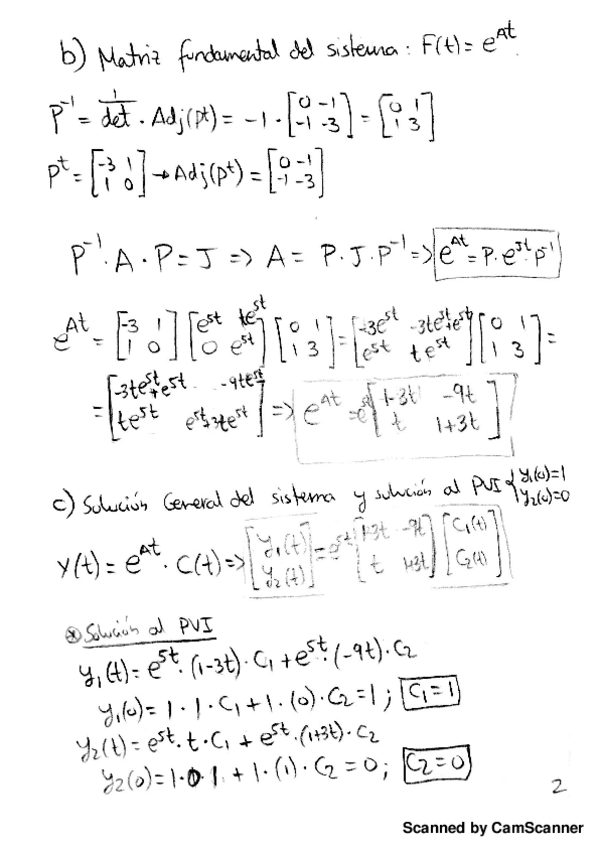 b) Matriz fundamental del sistema: F(t) = e^{At}
P^{-1} = 1/det · Adj(P^t) = -1 · [0 -1; -1 -3] = [0 1; 1 3]
P^t = [-3 1; 1 0] → Adj(P^t) = [0 -1; -1 -3]
P^{-1} · A · P = J => A = P · J · P^{-1} => e^{At} = P · e^{Jt} · P^{-1}
e^{At} = [-3 1; 1 0] [e^{5t} te^{5t}; 0 e^{5t}] [0 1; 1 3] = [-3e^{5t} -3te^{5t}+e^{5t}; e^{5t} te^{5t}] [0 1; 1 3] =
= [-3te^{5t}+e^{5t} -9te^{5t}; te^{5t} e^{5t}+3te^{5t}] => e^{At} = e^{5t} [1-3t -9t; t 1+3t]
c) Solución General del sistema y solución al PVI { y_1(0)=1 y_2(0)=0
Y(t) = e^{At} · C(t) => [y_1(t); y_2(t)] = e^{5t} [1-3t -9t; t 1+3t] [C_1(t); C_2(t)]
* Solución al PVI
y_1(t) = e^{5t} · (1-3t) · C_1 + e^{5t} · (-9t) · C_2
y_1(0) = 1 · 1 · C_1 + 1 · (0) · C_2 = 1 ; C_1 = 1
y_2(t) = e^{5t} · t · C_1 + e^{5t} · (1+3t) · C_2
y_2(0) = 1 · 0 · 1 + 1 · (1) · C_2 = 0 ; C_2 = 0
2
Scanned by CamScanner